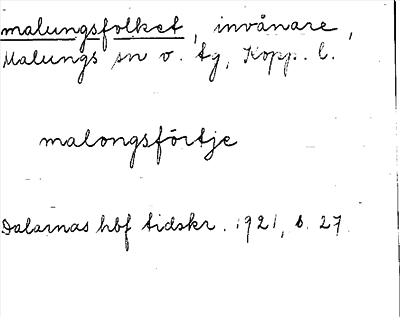 malungsfolket, invånare,
Malungs sn o. tg, Kopp. l.
malongsförtje
Dalarnas hbf tidskr. 1921, s. 27.